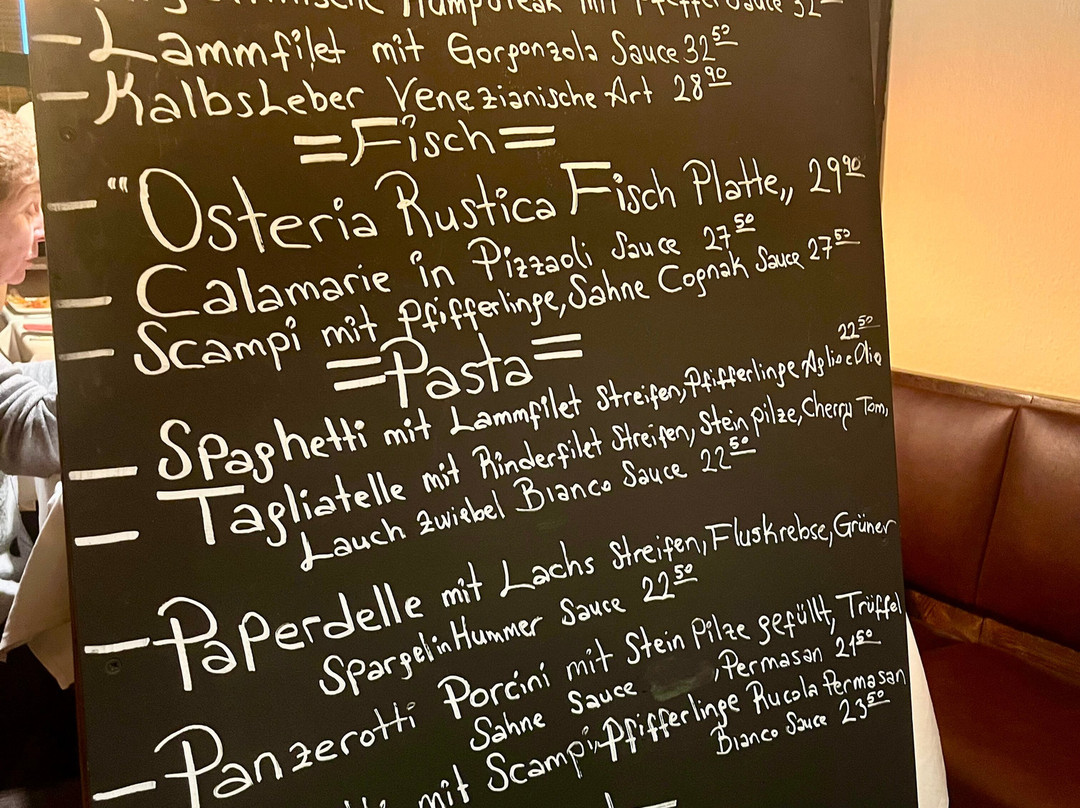 mit Pfeffer Sauce 32
- Lammfilet mit Gorgonzola Sauce 32 50
- KalbsLeber Venezianische Art 28 90
=Fisch=
- "Osteria Rustica Fisch Platte„ 29 90
- Calamarie in Pizzaoli Sauce 27 50
- Scampi mit Pfifferlinge, Sahne Cognak Sauce 27 50
=Pasta=
- Spaghetti mit Lammfilet Streifen, Pfifferlinge Aglio e Olio 22 50
- Tagliatelle mit Rinderfilet Streifen, Stein pilze, Cherry Tom,
Lauch Zwiebel Bianco Sauce 22 50
- Paperdelle mit Lachs Streifen, Fluskrebse, Grüner
Spargel in Hummer Sauce 22 50
- Panzerotti Porcini mit Stein Pilze gefüllt, Trüffel
Sahne Sauce , Permasan 21 50
mit Scampi, Pfifferlinge Rucola Permasan
Bianco Sauce 23 50